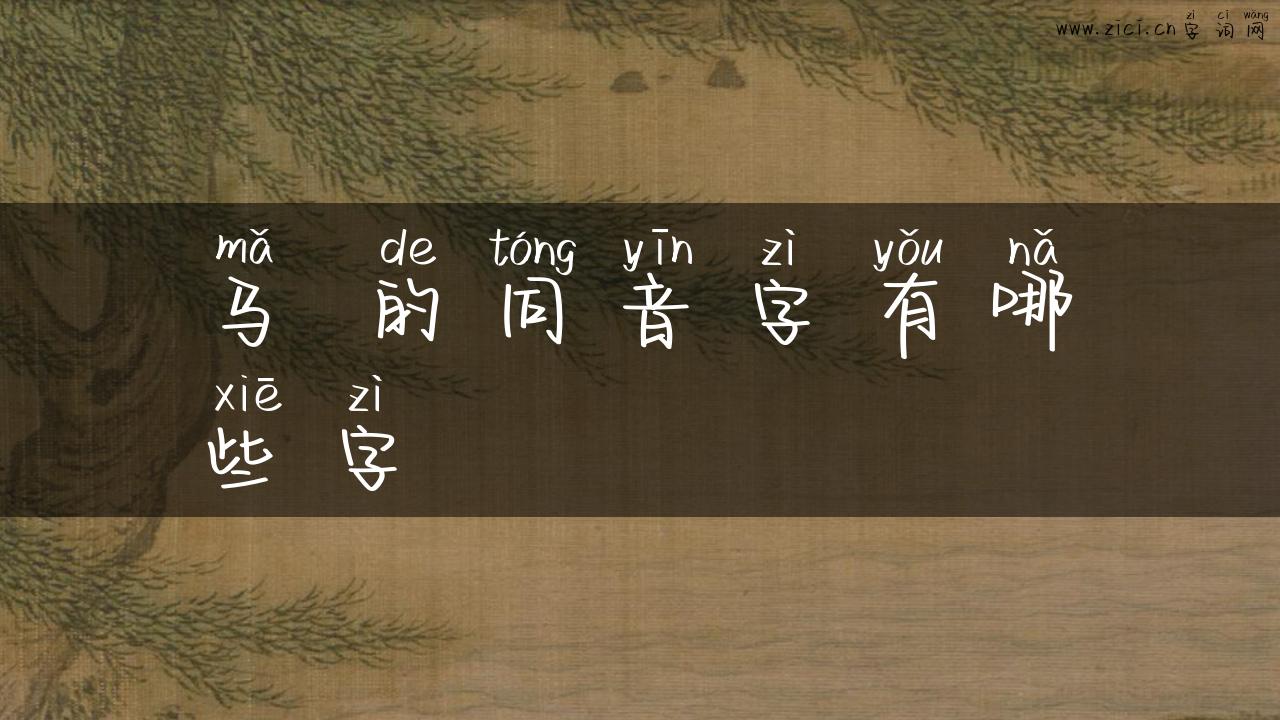 zì cí wǎng
www.zici.cn 字词网
mǎ de tóng yīn zì yǒu nǎ
马的同音字有哪
xiē zì
些字